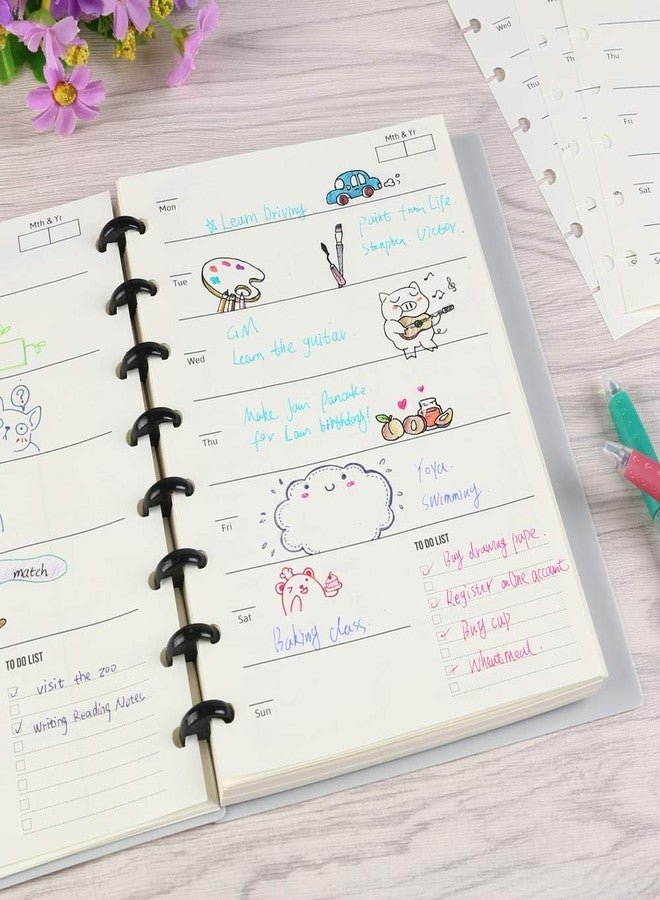 Mth & Yr
?
match
TO DO LIST
visit the zoo
Writing Reading Notes
Mth & Yr
Mon
Learn Driving
Tue
Paints from Life
Stenphen. Victor.
Wed
GM
Learn the guitar.
Thu
Make Jam Pancake
for Lam birthday!
Fri
Yoya.
Swimming
Sat
Baking class
Sun
TO DO LIST
Buy drawing pape.
Register online account
Buy cup
Wheatmeal.
Wed
Thu
Thu
Fri
Sat